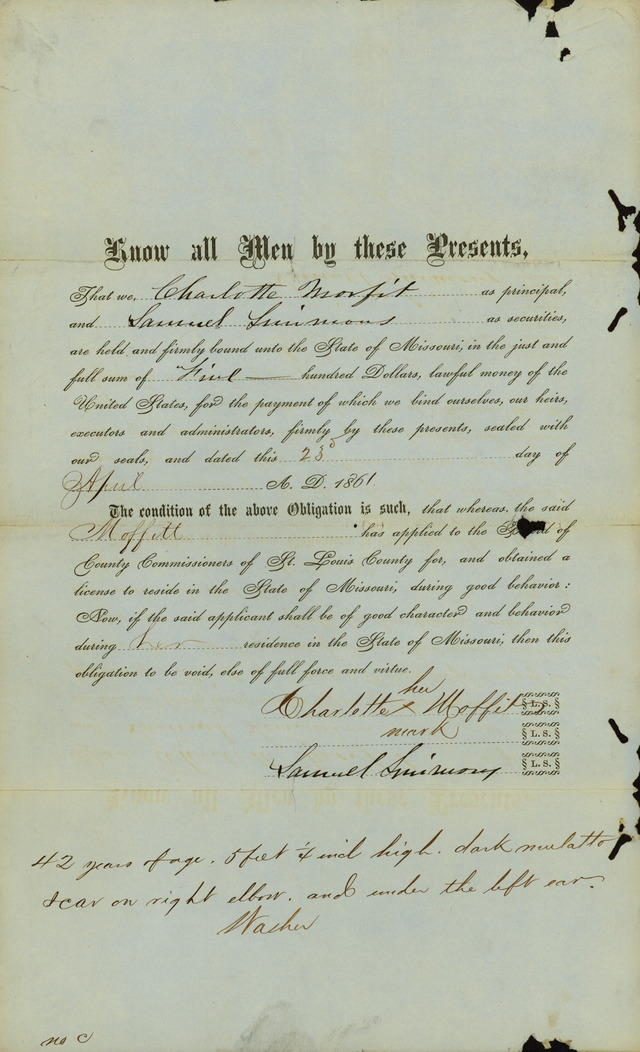 Know all Men by these Presents,
That we, Charlotte Morfit as principal,
and Samuel Simmons as securities,
are held and firmly bound unto the State of Missouri, in the just and
full sum of Five hundred Dollars, lawful money of the
United States, for the payment of which we bind ourselves, our heirs,
executors and administrators, firmly by these presents, sealed with
our seals, and dated this 23d day of
April A. D. 1861.
The condition of the above Obligation is such, that whereas, the said
Moffitt has applied to the Board of
County Commissioners of St. Louis County for, and obtained a
license to reside in the State of Missouri, during good behavior:
Now, if the said applicant shall be of good character and behavior
during her residence in the State of Missouri, then this
obligation to be void, else of full force and virtue.
her
Charlotte x Moffitt § L. S. §
mark § L. S. §
Samuel Simmons § L. S. §
42 years of age. 5 feet 4 inch high. dark mulatto
scar on right elbow. and under the left ear.
Washer
no C